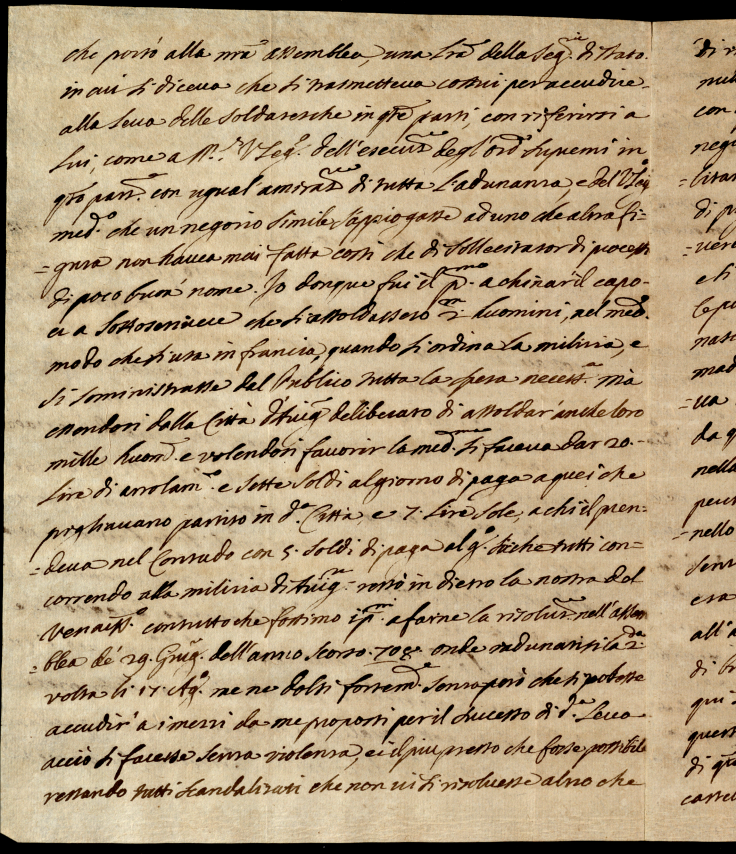 che portò alla nr̃a assemblea, una lr̃a della Seg.ria di stato.
in cui si diceva che si trasmetteva costui per accudire
alla leva delle soldatesche in q̃te parti, con riferirsi a
lui, come a M.r V Leg.o dell'esecuz.ne degl'ord. supremi in
q̃to part.e con ugual' amiraz.ne di tutta l'adunanza, e del V Leg.o
med.o che un negozio simile s'appiogasse ad uno che altra fi-
=gura non havea mai fatta costì che di sollecitator di processi
di poco buon' nome. Io donque fui il p.mo a chinar' il capo
ei a sottoscrivere che si assoldassero 2 m huomini, nel med.o
modo che si usa in francia, quando si ordina la milizia, e
si soministrasse dal Publico tutta la spesa necess.a ma
essendosi dalla Città d'Avig.ne deliberato di assoldar' anche loro
mille huom. e volendosi favorir la med.ma si faceva dar 20.
Lire di arrolam.to e sette soldi al giorno di paga a quei che
pigliavano partito in d.a Città, e 7. Lire sole, a chi il pren-
=deva nel Contado con 5. soldi di paga al g.o siche tutti con-
correndo alla milizia di Avig.ne restò in dietro la nostra del
Venaiss.o contutto che fossimo i p.mi a farne la risoluz.ne nell'assem
=blea de' 29. Giug. dell'anno scorso 708. onde radunatisi la 2.da
volta li 17. Ag.o me ne dolsi fortem.e senza però che si potesse
accudir' a i mezzi da me proposti per il successo di d.a Leva
acciò si facesse senza violenza, e i il più presto che fosse possibile
restando tutti scandalizati che non vi si risolvesse altro che